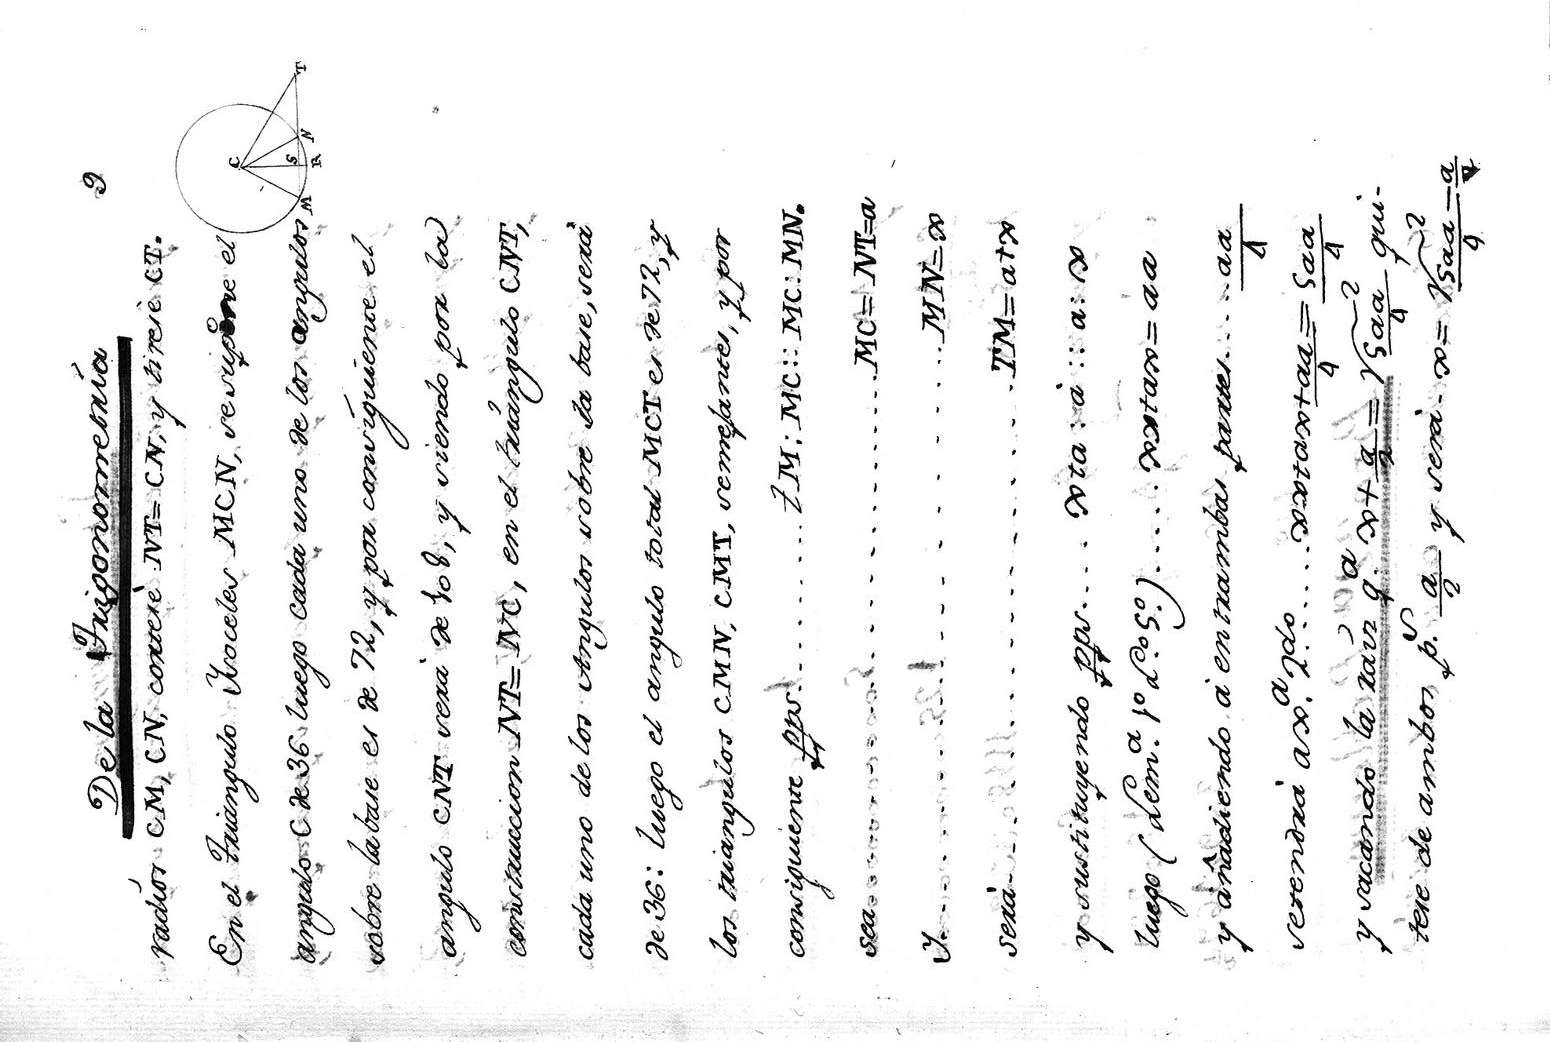 9
De la Trigonometría
radios CM, CN, corteze NT=CN, y tireze CT.
En el Triangulo Ysoceles MCN, se supone el
angulo C de 36 luego cada uno de los angulos
sobre la base es de 72, y por consiguiente el
angulo CNT sera de 108, y siendo por la
construccion NT=NC, en el triángulo CNT,
cada uno de los Angulos sobre la base, será
de 36: luego el angulo total MCT es de 72, y
los triangulos CMN, CMT, semejantes, y por
consiguiente pps.......... TM: MC:: MC: MN.
sea .......... MC=NT=a
Y .......... MN=x
será .......... TM=a+x
y sustituyendo pps.... x+a : a :: a : x
luego (Lem.a 1.o L.o 5.o) .... xx+ax=aa
y añadiendo á entrambas partes.... aa/4
se tendrá a x.a 2.do .... xx+ax+aa/4=5aa/4
y sacando la raiz q.a x+a/2=√5aa/4 qui-
tese de ambos p.s a/2 y será. x=√5aa/4-a/2
C
M
S
R
N
T